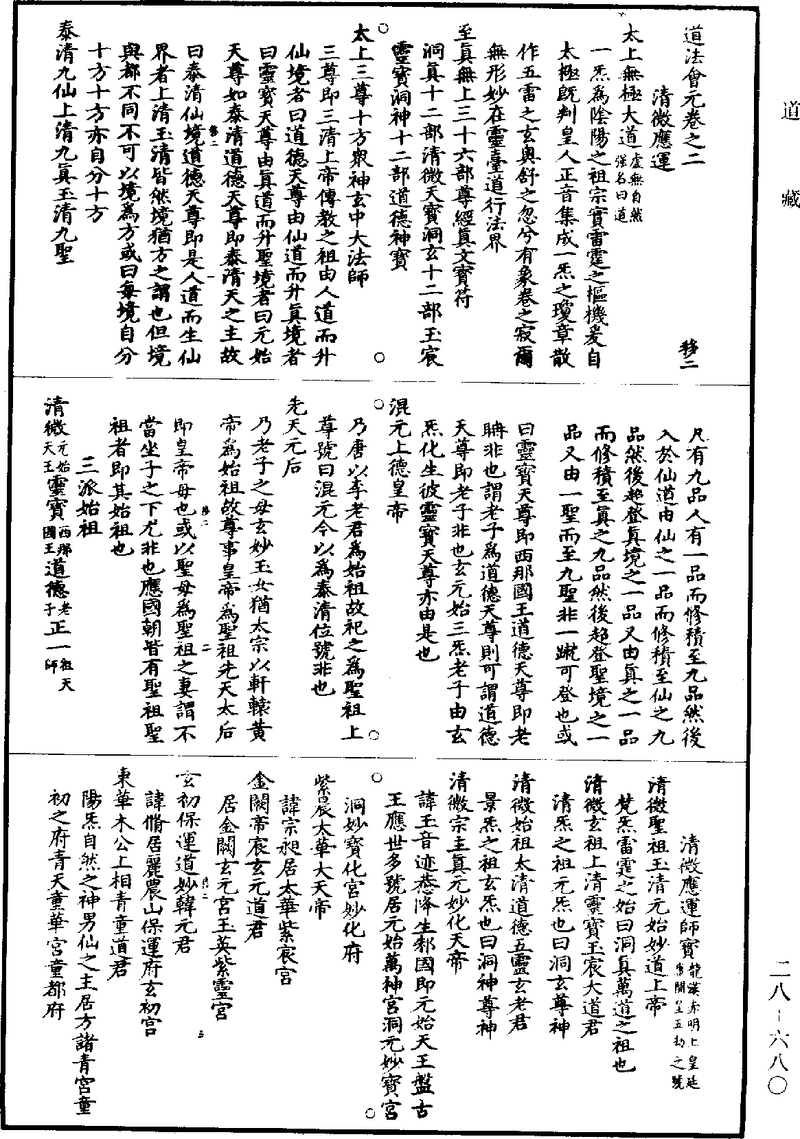 道藏
二八—六八〇
道法會元卷之二
移二
清微應運
太上無極大道虛無自然強名曰道
一炁為陰陽之祖宗實雷霆之樞機爰自
太極既判皇人正音集成一炁之瓊章散
作五雷之玄奧舒之忽兮有象卷之寂爾
無形妙在靈臺道行法界
至真無上三十六部尊經真文寶符
洞真十二部清微天寶洞玄十二部玉宸
靈寶洞神十二部道德神寶
太上三尊十方眾神玄中大法師
三尊即三清上帝傳教之祖由人道而升
仙境者曰道德天尊由仙道而升真境者
曰靈寶天尊由真道而升聖境者曰元始
天尊如泰清道德天尊即泰清天之主故
曰泰清仙境道德天尊即是人道而生仙
界者上清玉清皆然境猶方之謂也但境
與都不同不可以境為方或曰每境自分
十方十方亦自分十方
泰清九仙上清九真玉清九聖
凡有九品人有一品而修積至九品然後
入於仙道由仙之一品而修積至仙之九
品然後超登真境之一品又由真之一品
而修積至真之九品然後超登聖境之一
品又由一聖而至九聖非一蹴可登也或
曰靈寶天尊即西那國王道德天尊即老
聃非也謂老子為道德天尊則可謂道德
天尊即老子非也玄元始三炁老子由玄
炁化生彼靈寶天尊亦由是也
混元上德皇帝
乃唐以李老君為始祖故祀之為聖祖上
尊號曰混元今以為泰清位號非也
先天元后
乃老子之母玄妙玉女猶太宗以軒轅黃
帝為始祖故尊事皇帝為聖祖先天太后
即皇帝母也或以聖母為聖祖之妻謂不
當坐子之下尤非也應國朝皆有聖祖聖
祖者即其始祖也
三派始祖
清微元始天王靈寶西那國王道德老子正一祖天師
清微應運師寶龍漢赤明上皇延康開皇五劫之號
清微聖祖玉清元始妙道上帝
梵炁雷霆之始曰洞真萬道之祖也
清微玄祖上清靈寶玉宸大道君
清炁之祖元炁也曰洞玄尊神
清微始祖太清道德五靈玄老君
景炁之祖玄炁也曰洞神尊神
清微宗主真元妙化天帝
諱玉音迹恭降生郲國即元始天王盤古
王應世多號居元始萬神宮洞元妙寶宮
洞妙寶化宮妙化府
紫晨太華大天帝
諱宗昶居太華紫宸宮
金闕帝宸玄元道君
居金闕玄元宮玉英紫靈宮
玄初保運道妙韓元君
諱脩居麗農山保運府玄初宮
東華木公上相青童道君
陽炁自然之神男仙之主居方諸青宮童
初之府青天童華宮童都府